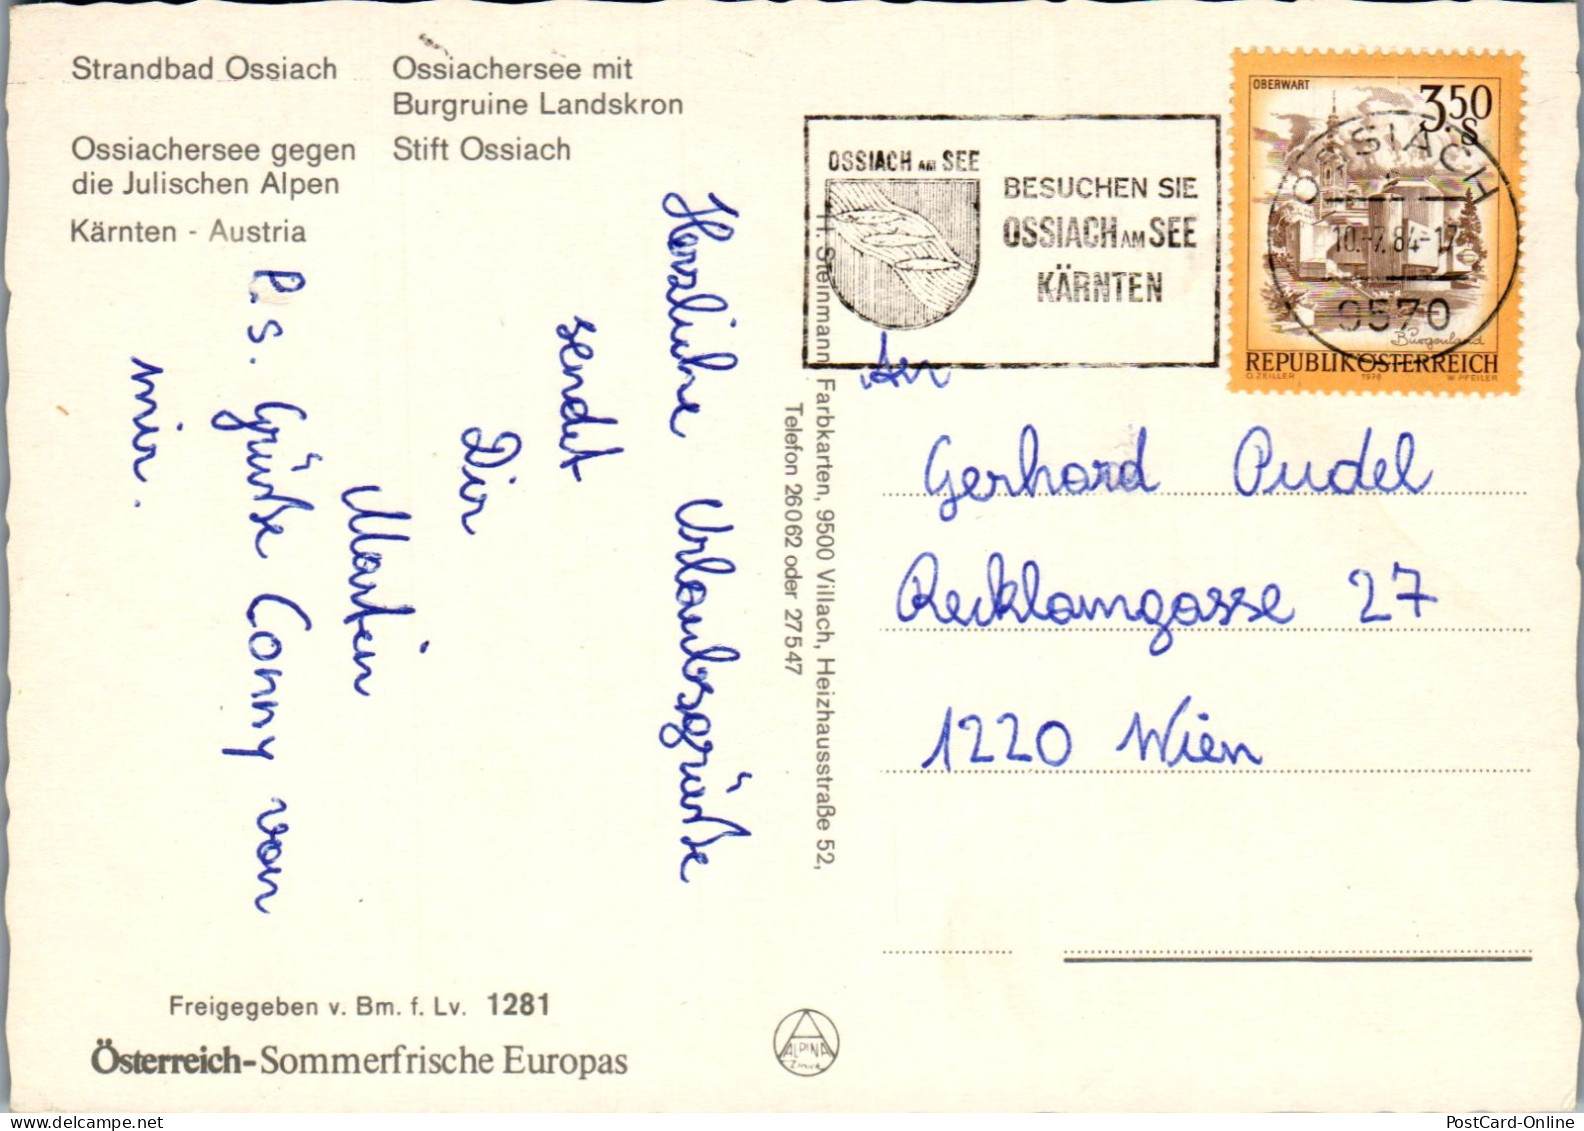 Strandbad Ossiach
Ossiachersee gegen
die Julischen Alpen
Kärnten - Austria
Ossiachersee mit
Burgruine Landskron
Stift Ossiach
Herzliche Urlaubsgrüße
sendet
Dir
Martin
P.s. Grüße Conny von
mir.
Freigegeben v. Bm. f. Lv. 1281
Österreich-Sommerfrische Europas
H. Steinmann, Farbkarten, 9500 Villach, Heizhausstraße 52,
Telefon 26062 oder 27547
ALPINA
OSSIACH AM SEE
BESUCHEN SIE
OSSIACH AM SEE
KÄRNTEN
OBERWART
3.50
S
Burgenland
REPUBLIK ÖSTERREICH
O. ZEILLER 1978 W. PFEILER
OSSIACH
10.-7.84-17
9570
An
Gerhard Pudel
Recklamgasse 27
1220 Wien
PostCard-Online